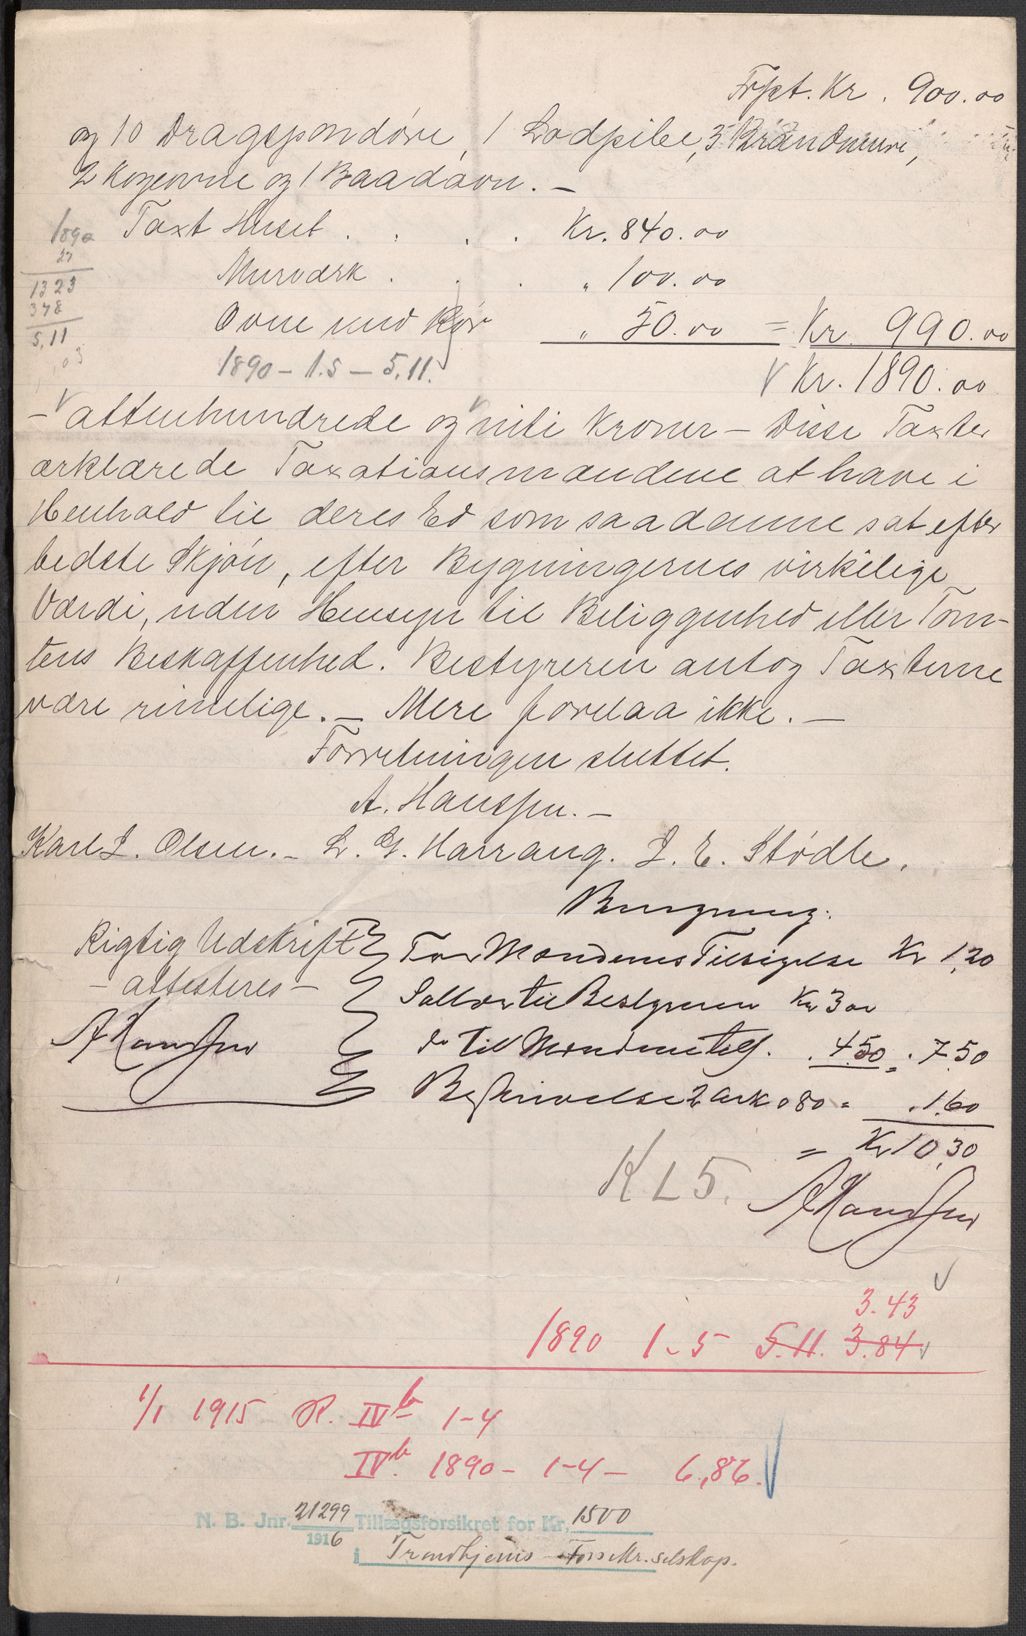 Frpt. Kr. 900.00
og 10 Dragspondøre, 1 Lodpibe, 3 Brandmure,
2 Kogeovne og 1 Baadaovn. —
Taxt Huset . . . . Kr. 840.00
Murværk . . . " 100.00
Ovne med Rør " 50.00 = Kr. 990.00
1890
27
1323
378
5,11
1890 — 1.5 — 5.11.
Kr. 1890.00
— attenhundrede og niti Kroner — Disse Taxter
erklærede Taxationsmændene at have i
Henhold til deres Ed som saadanne sat efter
bedste Skjøn, efter Bygningernes virkelige
Værdi, uden Hensyn til Beliggenhed eller Tom-
tens Beskaffenhed. Bestyreren antog Taxterne
være rimelige. — Mere forelaa ikke. —
Forretningen sluttet.
A. Hanssen. —
Karl L. Olsen. — L. G. Harrang. J. E. Stødle.
Beregning:
Rigtig Udskrift
— attesteres —
AHanssen
For Mændenes Tilsigelse Kr 1,20
Sallær til Bestyreren Kr 3 00
do til Mændene . 4.50 = . 7.50
Beskrivelse 2 Ark a 80 = . 1.60
= Kr 10,30
K L 5.
AHanssen
3.43
1890 1-5 5.11. 3.84
1/1 1915 R. IVb 1-4
IVb. 1890 — 1-4 — 6,86.
N. B. Jnr. 21299 Tillægsforsikret for Kr. 1500
1916
i Trondhjems Forsikr. selskap.